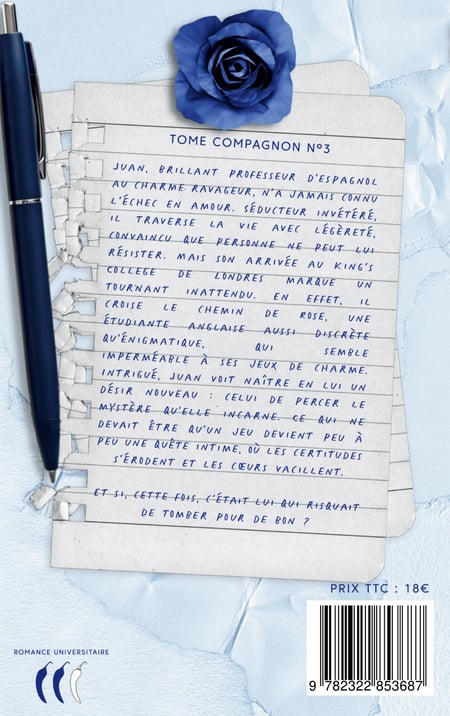 TOME COMPAGNON N°3
JUAN, BRILLANT PROFESSEUR D'ESPAGNOL
AU CHARME RAVAGEUR, N'A JAMAIS CONNU
L'ÉCHEC EN AMOUR. SÉDUCTEUR INVÉTÉRÉ,
IL TRAVERSE LA VIE AVEC LÉGÈRETÉ,
CONVAINCU QUE PERSONNE NE PEUT LUI
RÉSISTER. MAIS SON ARRIVÉE AU KING'S
COLLEGE DE LONDRES MARQUE UN
TOURNANT INATTENDU. EN EFFET, IL
CROISE LE CHEMIN DE ROSE, UNE
ÉTUDIANTE ANGLAISE AUSSI DISCRÈTE
QU'ÉNIGMATIQUE, QUI SEMBLE
IMPERMÉABLE À SES JEUX DE CHARME.
INTRIGUÉ, JUAN VOIT NAÎTRE EN LUI UN
DÉSIR NOUVEAU : CELUI DE PERCER LE
MYSTÈRE QU'ELLE INCARNE. CE QUI NE
DEVAIT ÊTRE QU'UN JEU DEVIENT PEU À
PEU UNE QUÊTE INTIME, OÙ LES CERTITUDES
S'ÉRODENT ET LES CŒURS VACILLENT.
ET SI, CETTE FOIS, C'ÉTAIT LUI QUI RISQUAIT
DE TOMBER POUR DE BON ?
PRIX TTC : 18€
ROMANCE UNIVERSITAIRE
9 782322 853687